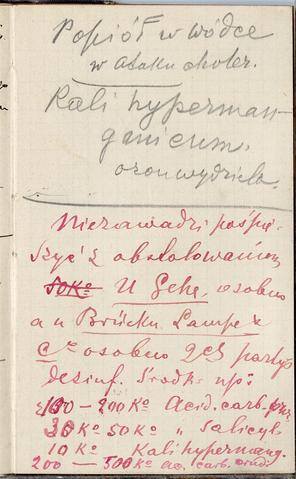 Popiół w wódce
w ataku choler.
Kali hyperman-
ganicum.
ozon wydziela.
Niezawadzi pośpie-
szyć z obstalowaniem
50 Ko U Gehe, osobno
a u Brückn. Lampe &
Co osobno 2ch partyj
dezinf. środk. npż
100 — 200 Ko Acid. carb. pur.
30 Ko 50 Ko " salicyl.
10 Ko Kali hypermang.
200 — 500 Ko ac. carb. crud.